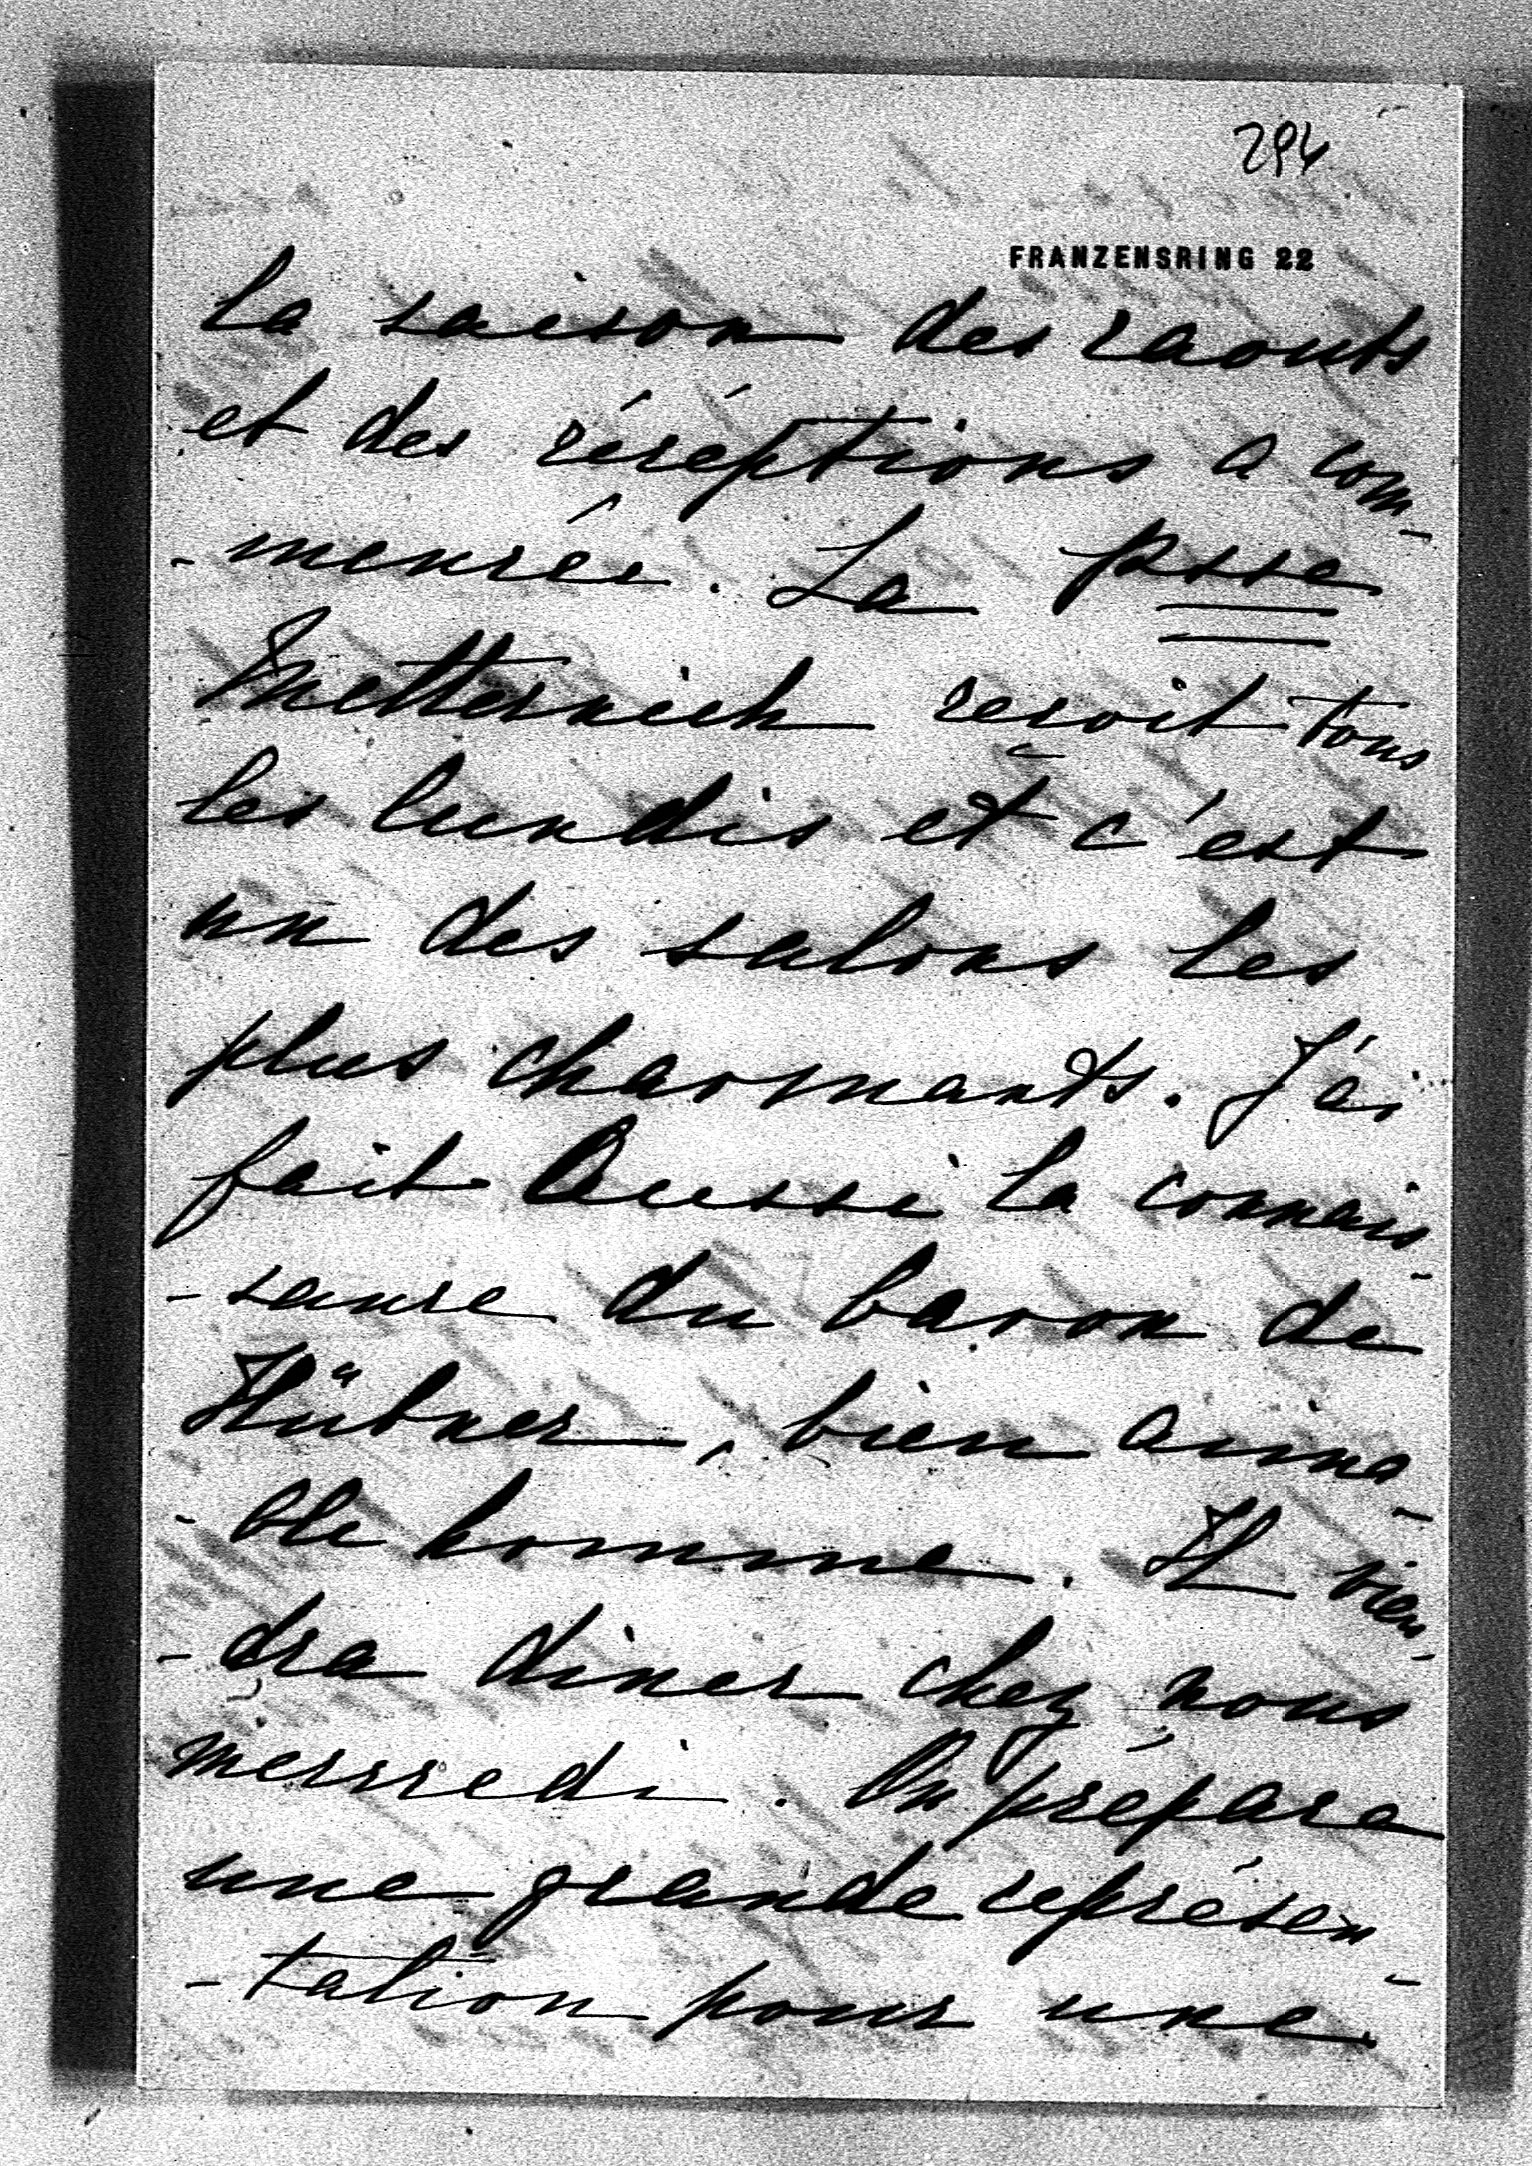 294
FRANZENSRING 22
la saison des raouts
et des réréptions a com-
-mensée. La psse
Metternich reçoit tous
les lundis et c'est
un des salons les
plus charmants. J'ai
fait aussi la connais-
-sance du baron de
Hübner, bien aima-
-ble homme. Il vien-
-dra diner chez nous
mercredi. On prépare
une grande représen-
-tation pour une